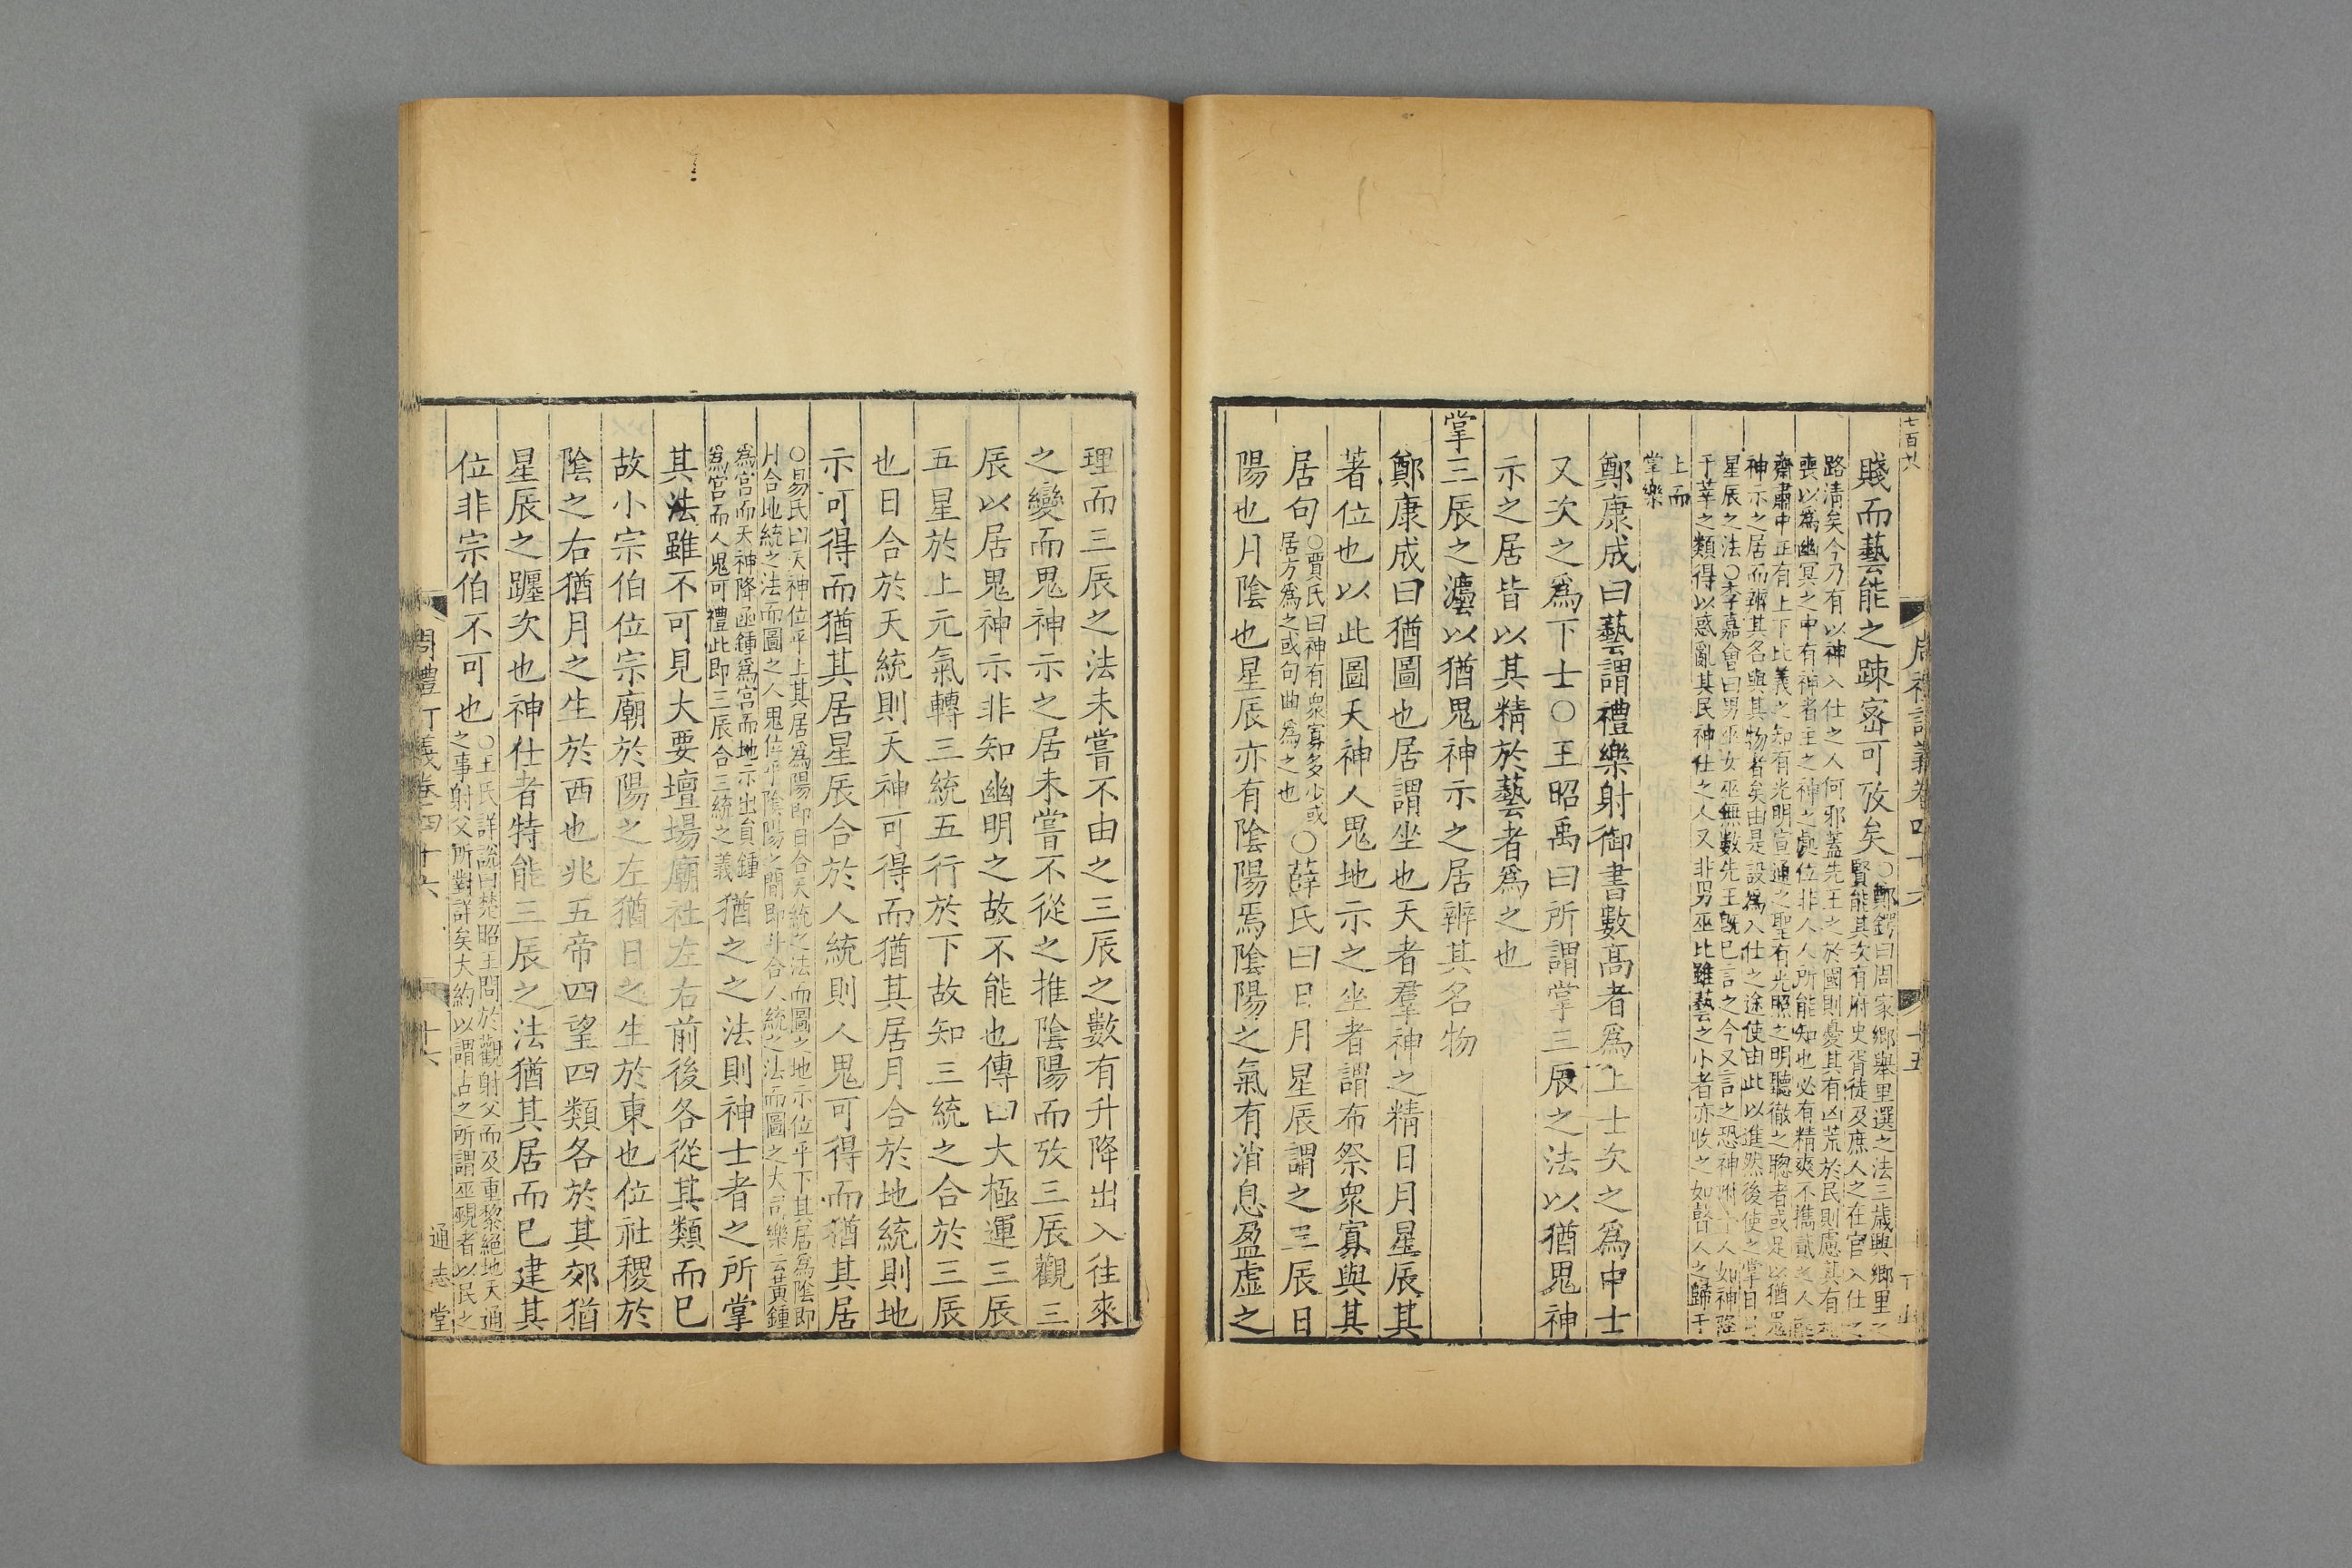 七百廿八
周禮訂義卷四十六
十五
賤而藝能之踈宻可攷矣○鄭鍔曰周家鄉舉里選之法三歳興鄉里之
賢能其次有府史胥徒及庶人之在官入仕之
路清矣今乃有以神入仕之人何邪蓋先王之於國則憂其有凶荒於民則慮其有
喪以為幽冥之中有神者主之神之處位非人人所能知也必有精爽不攜貳之人
齋肅中正有上下比義之知有光明宣通之聖有光照之明聽徹之聰者或足以猶鬼
神示之居而辨其名與其物者矣由是設爲入仕之途使由此以進然後使之掌日月
星辰之法○李嘉會曰男巫女巫無數先王旣已言之今又言之恐神附之人如神降
于莘之類得以惑亂其民神仕之人又非男巫比雖藝之小者亦收之如瞽人之歸于
上而
掌樂
鄭康成曰藝謂禮樂射御書數高者爲上士次之爲中士
又次之爲下士○王昭禹曰所謂掌三辰之法以猶鬼神
示之居皆以其精於藝者爲之也
掌三辰之灋以猶鬼神示之居辨其名物
鄭康成曰猶圖也居謂坐也天者羣神之精日月星辰其
著位也以此圖天神人鬼地示之坐者謂布祭衆寡與其
居句○賈氏曰神有衆寡多少或
居方爲之或句曲爲之也○薛氏曰日月星辰謂之三辰日
陽也月陰也星辰亦有陰陽焉陰陽之氣有消息盈虛之
理而三辰之法未嘗不由之三辰之數有升降出入往來
之變而鬼神示之居未嘗不從之推陰陽而攷三辰觀三
辰以居鬼神示非知幽明之故不能也傳曰大極運三辰
五星於上元氣轉三統五行於下故知三統之合於三辰
也日合於天統則天神可得而猶其居月合於地統則地
示可得而猶其居星辰合於人統則人鬼可得而猶其居
○易氏曰天神位乎上其居爲陽即日合天統之法而圖之地示位乎下其居爲陰即
月合地統之法而圖之人鬼位乎陰陽之間即斗合人統之法而圖之大司樂云黃鍾
爲宮而天神降函鍾爲宮而地示出黃鍾
爲宮而人鬼可禮此即三辰合三統之義猶之之法則神士者之所掌
其法雖不可見大要壇場廟社左右前後各從其類而已
故小宗伯位宗廟於陽之左猶日之生於東也位社稷於
陰之右猶月之生於西也兆五帝四望四類各於其郊猶
星辰之躔次也神仕者特能三辰之法猶其居而已建其
位非宗伯不可也○王氏詳說曰楚昭王問於觀射父而及重黎絕地天通
之事射父所對詳矣大約以謂古之所謂巫覡者以民之
周禮訂義卷四十六
十六
通志堂